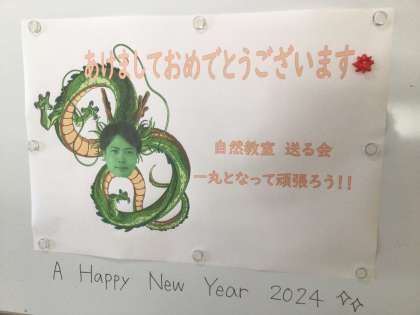 あけましておめでとうございます
自然教室 送る会
一丸となって頑張ろう!!
A Happy New Year 2024